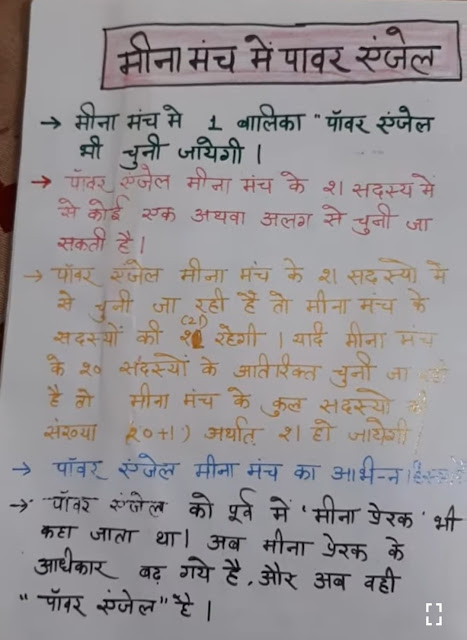 मीना मंच में पावर एंजेल
→ मीना मंच मे 1 बालिका "पॉवर एंजेल
भी चुनी जायेगी ।
→ पॉवर एंजेल मीना मंच के २१ सदस्य में
से कोई एक अथवा अलग से चुनी जा
सकती है ।
→ पॉवर एंजेल मीना मंच के २१ सदस्यो में
से चुनी जा रही है तो मीना मंच के
सदस्यों की (21) रहेगी । यदि मीना मंच
के २० सदस्यों के अतिरिक्त चुनी जा
है तो मीना मंच के कुल सदस्यो
संख्या (२०+1) अर्थात् २१ हो जायेगी
→ पॉवर एंजेल मीना मंच का अभिन्न
→ पॉवर एंजेल को पूर्व में 'मीना प्रेरक' भी
कहा जाता था। अब मीना प्रेरक के
अधिकार बढ़ गये है, और अब वही
"पॉवर एंजेल" है ।